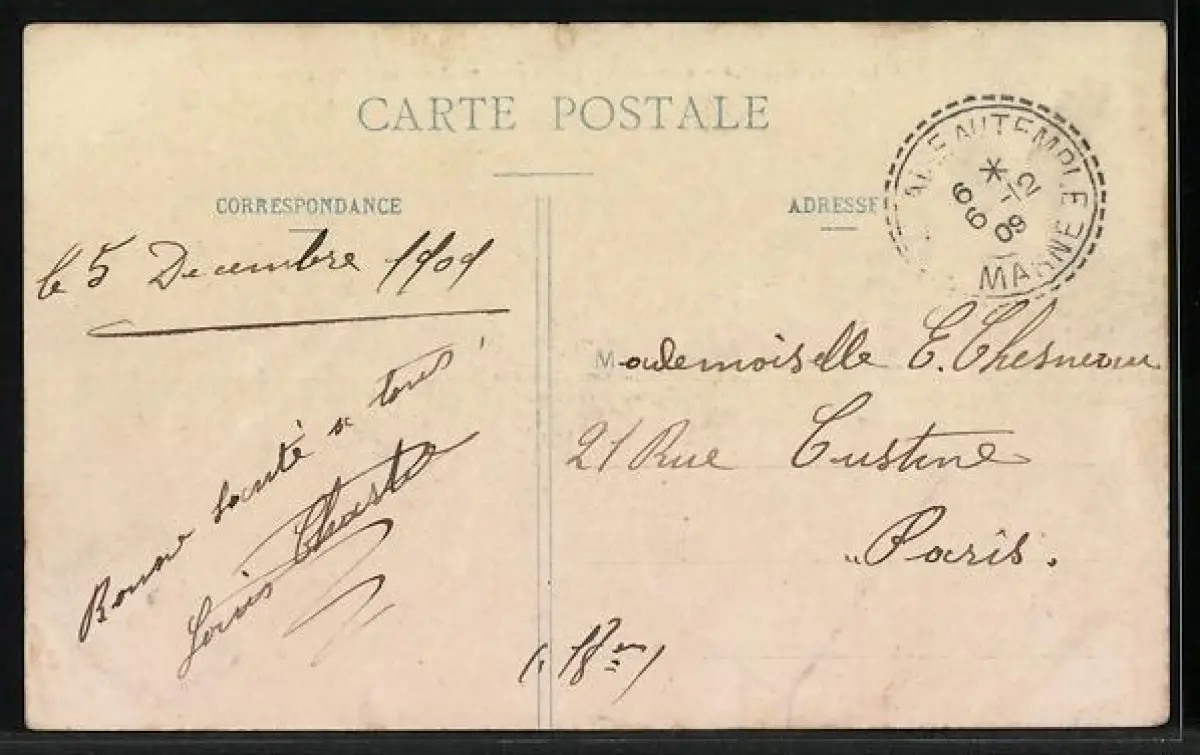 CARTE POSTALE
CORRESPONDANCE
ADRESSE
AUTEMPLE
* 6 6 -12 09
MARNE
le 5 Decembre 1909
Bonne santé a tous
Louis
Mademoiselle E. Chesneau
21 Rue Custine
Paris.
(18em)